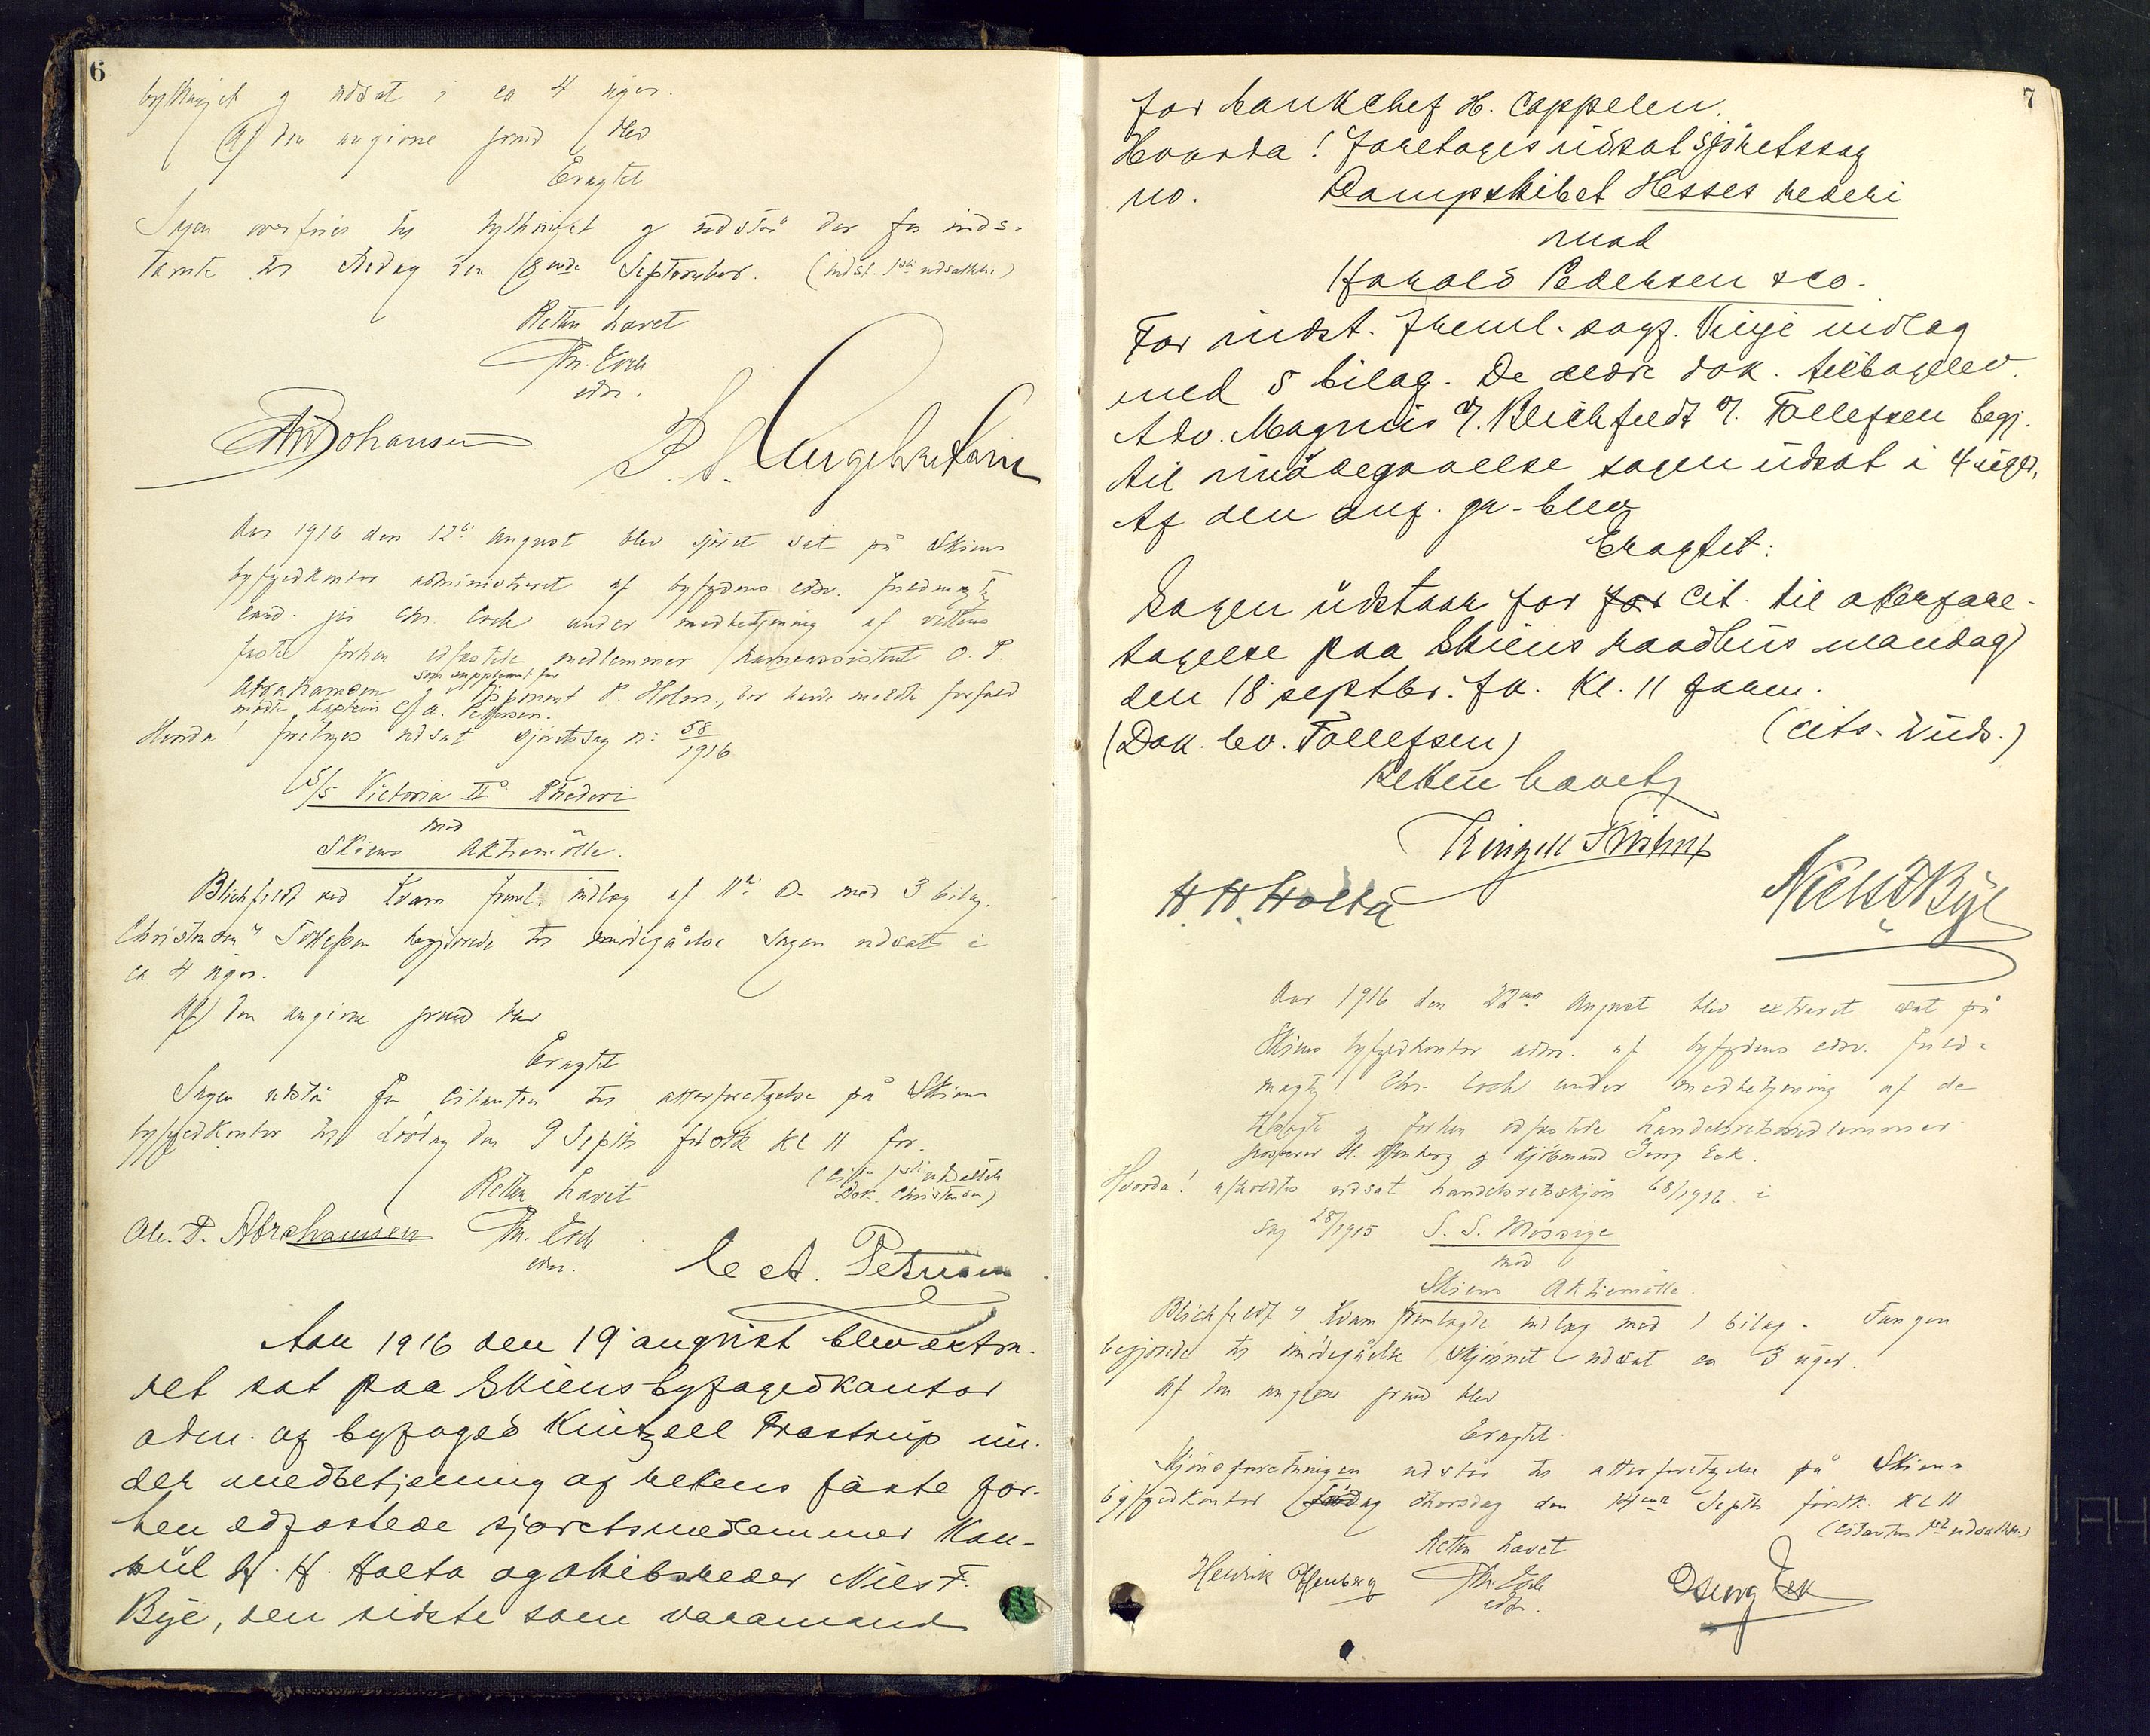 6
bythinget og udsat i ca 4 uger.
Af den angivne grund blev
Eragtet
Sagen overføres til bythinget og udstår der for inds-
tævnte til tirsdag den September. (indst. udsættelse)
Retten hævet
Chr. Loch
edsv.
Johansen
Aar 1916 den 12te August blev sjøret sat på Skiens
byfogedkontor administreret af byfogdens edsv. fuldmægtig
cand. jur Chr. Loch under medbetjening af rettens
faste forhen edfæstede medlemmer havneassistent O. P.
Abrahamsen som suppleant for skibsmægl. P. Holm, der havde meldt forfald
mødte kaptein C. A. Petersen.
Hvorda! foretages udsat sjøretssag no: 58/1916
S/S Victoria II's Rhederi
mod
Skiens Aktiemølle.
Blichfeldt ved Kvam freml. indlæg af 11te ds med 3 bilag.
Christensen v Tollefsen begjærede til imødegåelse sagen udsat i
ca 4 uger.
Af den angivne grund blev
Eragtet
Sagen udstår for Citanten til atterforetagelse på Skiens
byfogedkontor til Lørdag den 9 Septb førstk Kl 11 for.
(Citanten udsættelse
Dok. Christensen)
Retten hævet
Ole. P. Abrahamsen Chr. Loch
edsv.
C A. Petersen
Aar 1916 den 19 august blev extra-
ret sat paa Skiens byfogedkontor
adm. af byfoged Kintzell Frøstrup un-
der medbetjening af rettens faste for-
hen edfæstede sjøretsmedlemmer Kon-
sül H. H. Holta og skibsreder Niels F.
Bye, den sidste som varamand
7
for bankchef H. Cappelen.
Hvorda! foretages üdsat sjöretssag
no. Dampskibet Hesses rederi
mod
Harald Pedersen & co.
For indst. freml. sagf. Vinje indlæg
med 5 bilag. De ældre dok. tilbagelev.
Adv. Magnus v/. Blichfeldt v/. Tollefsen begj.
til imödegaaelse sagen üdsat i 4 uger.
Af den anf. gr. blev
Eragtet:
Sagen üdstaar for for cit. til atterfore-
tagelse paa Skiens raadhüs mandag
den 18 septbr. fk. Kl. 11 form.
(Dok. lev. Tollefsen) (cits. 2 üds.)
Retten hævet
Kintzell Frøstrup
H. H. Holta
Niels F Bye
Aar 1916 den 22nd August blev extraret sat på
Skiens byfogedkontor adm. af byfogdens edsv. fuld-
mægtig Chr. Loch under medbetjening af de
tilsagte og forhen edfæstede handelsretsmedlemmer
grosserer H. Offenberg og kjöbmand Georg Eek.
Hvorda! afholdtes udsat handelsretsskjön 68/1916 i
sag 28/1915 S. S. Mossige
mod
Skiens Aktiemølle.
Blichfeldt v Kvam fremlagde indlæg med 1 bilag. Tangen
begjærede til imødegåelse skjønnet udsat ca 3 uger.
Af den angivne grund blev
Eragtet.
Skjønsforretningen udstår til atterforetagelse på Skiens
byfogedkontor lørdag thorsdag den 14ende Septb førstk. Kl 11
(Citantens udsættelse)
Retten hævet
Henrik Offenberg Chr. Loch
edsv.
Georg Eek